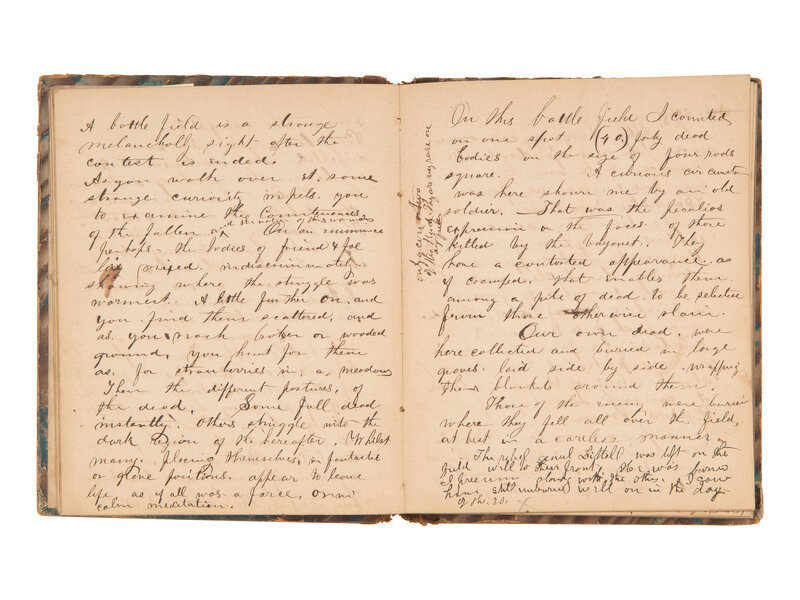 A battle field is a strange
melancholly sight after the
contest is ended.
As you walk over it, some
strange curiosity impels you
to examine the Countenances
of the fallen and of the wounds
On an eminence
perhaps, the bodies of friend & foe
lie mixed indiscriminately
showing where the struggle was
warmest. A little further on, and
you find them scattered, and
as you reach broken or wooded
ground, you hunt for them
as for strawberries in a meadow
Then the different postures, of
the dead. Some fall dead
instantly. Others struggle into the
dark region of the hereafter. Whilst
many, placing themselves, in fantastic
or grave positions, appear to leave
life as if all was a farce, or in
calm meditation.
On this battle field I counted
on one spot, (40.) forty dead
bodies on the size of four rods
square. A curious circumstan
was here shown me by an old
soldier. That was the peculiar
expression on the faces of those
killed by the bayonet. They
bore a contorted appearance, as
if cramped, that enables them
among a pile of dead to be selected
from those otherwise slain.
Our own dead, were
here collected and buried in large
graves. laid side by side, wrapping
their blankets around them.
Those of the enemy were buried
where they fell all over the field,
at best in a careless manner,
The rebel Genl was left on the
field well to their front. He was
along with the others. I saw
him still unburied well on in the day
of the 20.